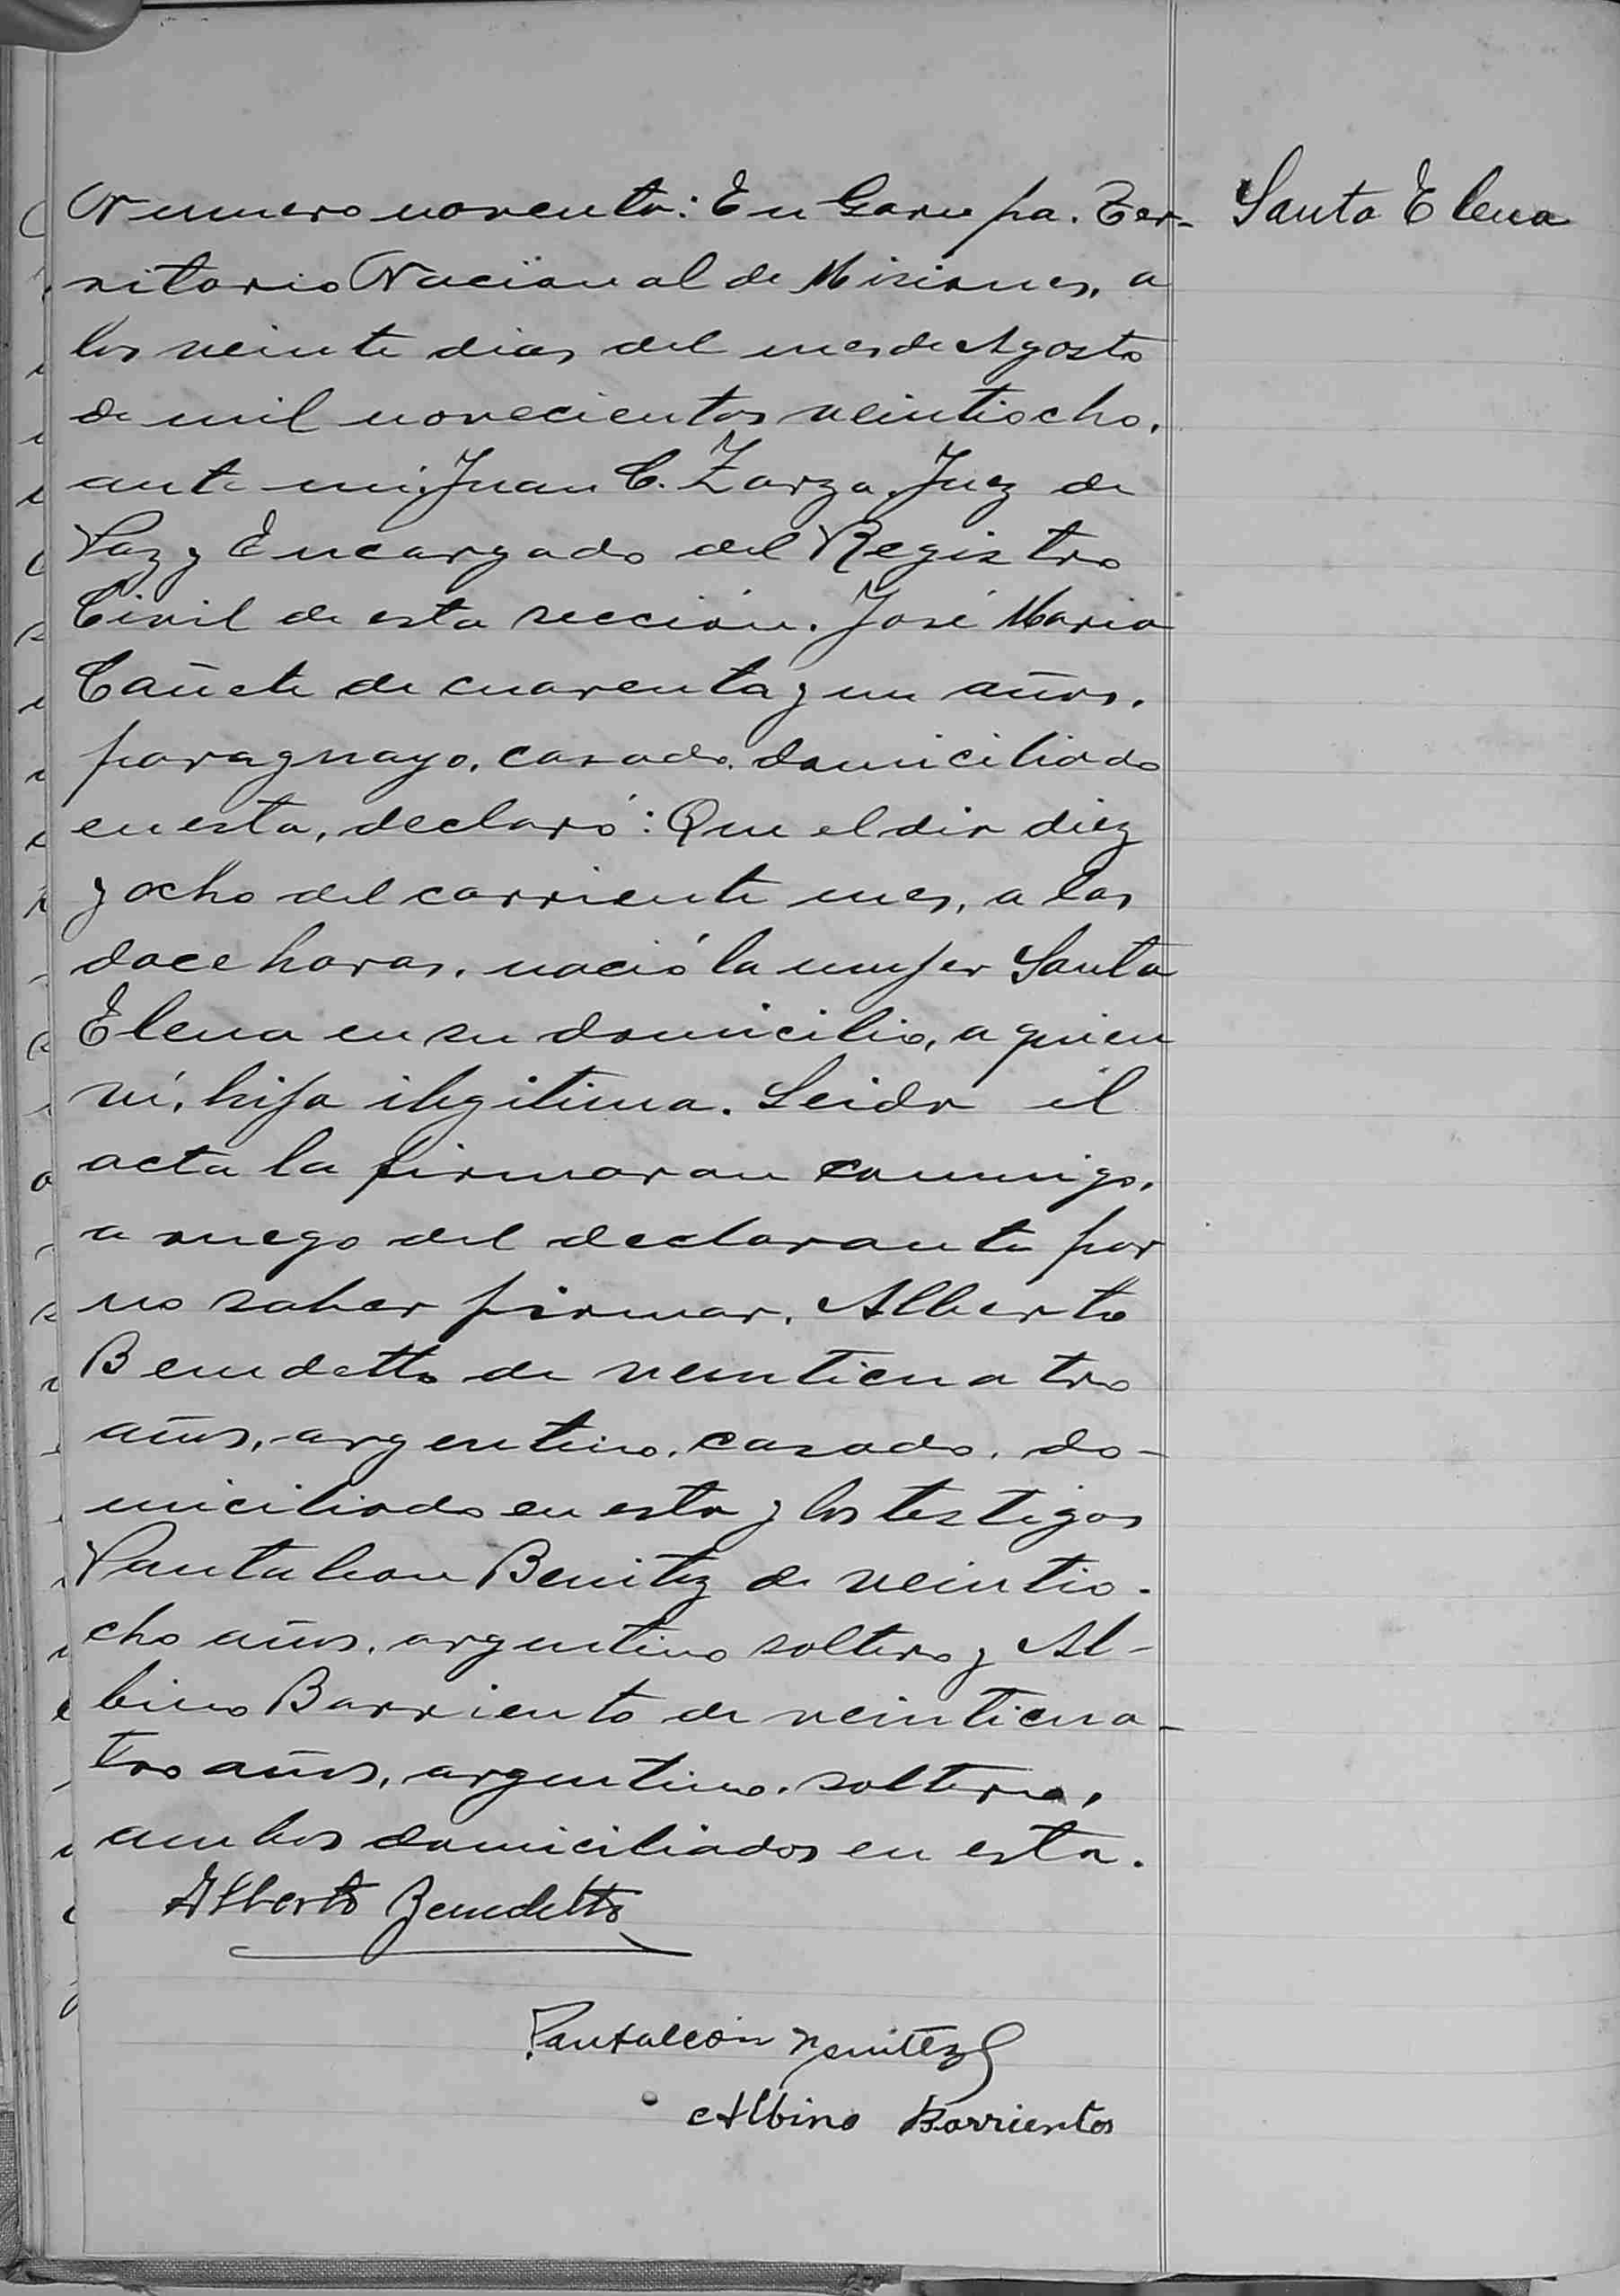 Numero noventa: En Garupa. Ter-
Santa Elena
ritorio Nacional de Misiones, a
los veinte dias del mes de Agosto
de mil novecientos veintiocho,
ante mi, Juan C. Zarza, Juez de
Paz y Encargado del Registro
Civil de esta sección. José Maria
Cañete de cuarenta y un años,
paraguayo, casado, domiciliado
en esta, declaró: Que el dia diez
y ocho del corriente mes, a las
doce horas, nació la mujer Santa
Elena en su domicilio, a quien
ví, hija ilegitima. Leida el
acta la firmaran conmigo,
a ruego del declarante por
no saber firmar, Alberto
Benedetto de veinticuatro
años, argentino, casado, do-
miciliado en esta y los testigos
Pantaleon Benitez de veintio-
cho años, argentino soltero y Al-
bino Barriento de veinticua-
tro años, argentino, soltero,
ambos domiciliados en esta.
Alberto Benedetto
Pantaleón Benitez
Albino Barrientos